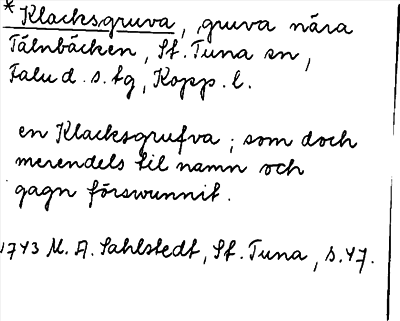 * Klacksgruva, gruva nära
Tälnbäcken, St. Tuna sn,
Falu d. s. tg, Kopp. l.
en Klacksgrufva; som doch
merendels til namn och
gagn förswunnit.
1743 M. A. Sahlstedt, St. Tuna, s. 47.